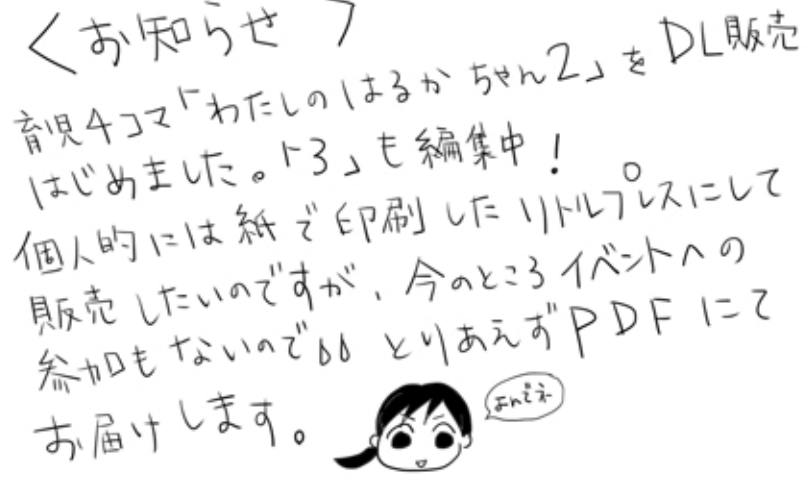 ＜お知らせ＞
育児4コマ「わたしのはるかちゃん2」をDL販売
はじめました。「3」も編集中！
個人的には紙で印刷したリトルプレスにして
販売したいのですが、今のところイベントへの
参加もないので𛀸 とりあえずPDFにて
お届けします。
よんでネ